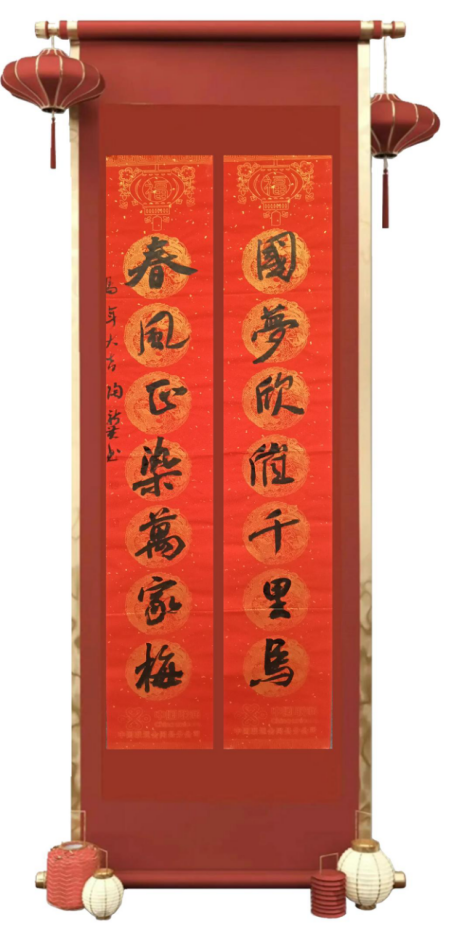 國夢欣催千里馬
春風正染萬家梅
馬年大吉 陶龔书